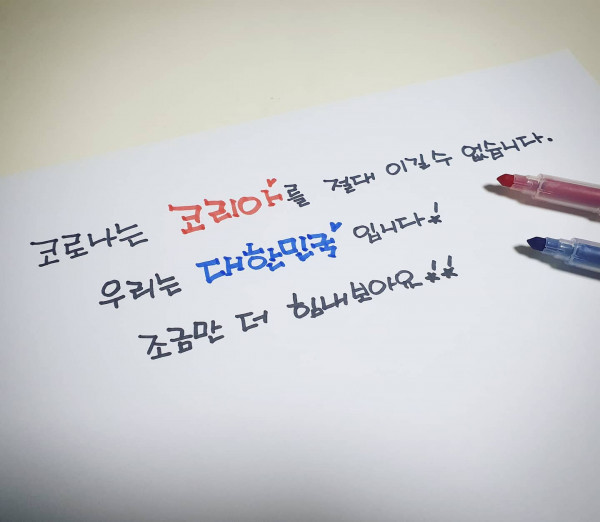 코로나는 코리아를 절대 이길수 없습니다.
우리는 대한민국 입니다!
조금만 더 힘내보아요!!